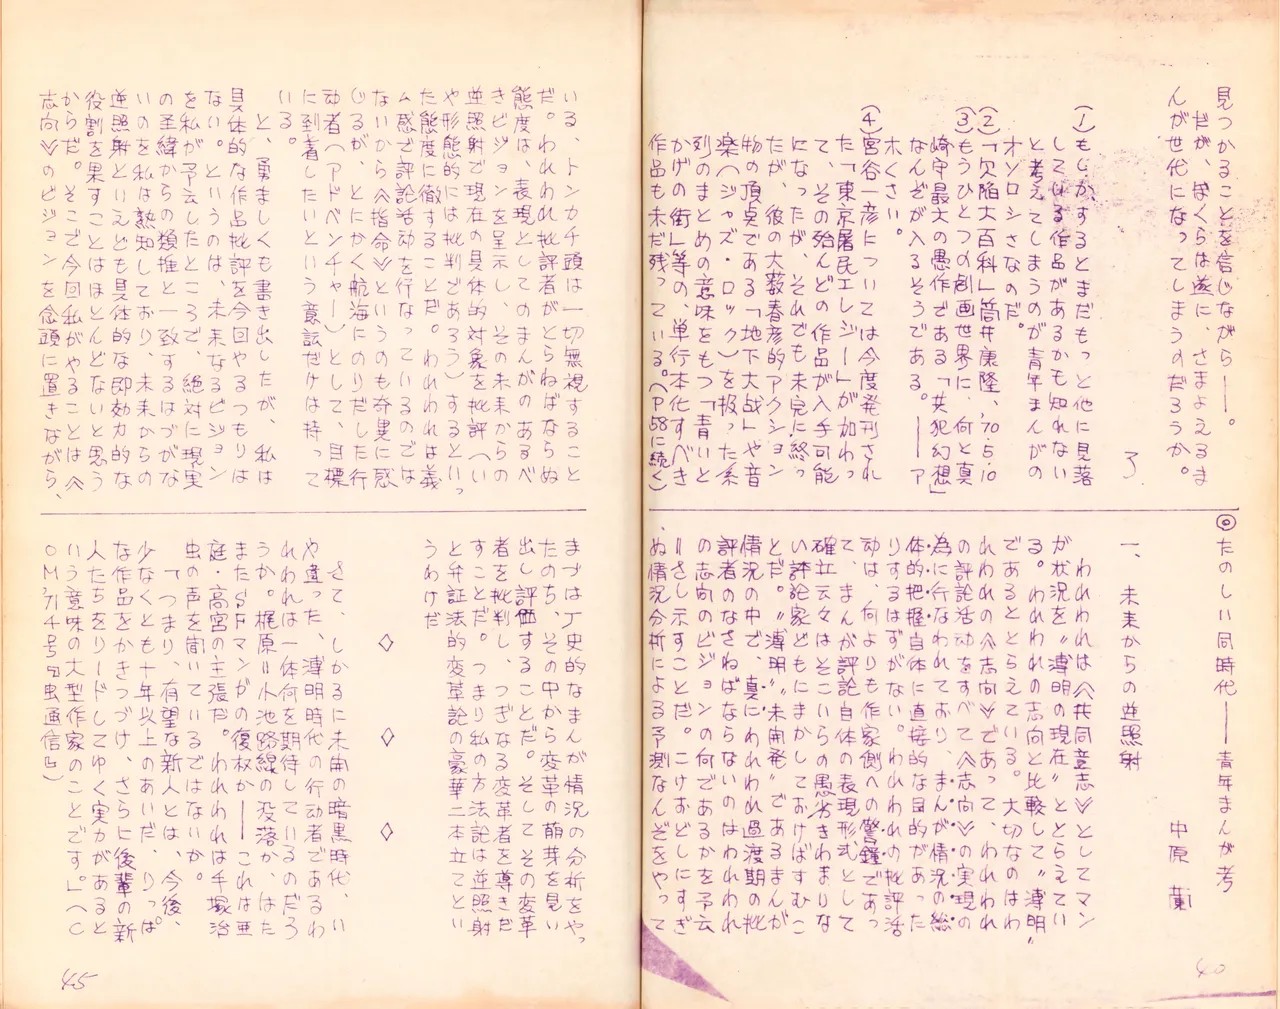 見つかることを信じながら——。
だが、ぼくらは遂に、さまよえるま
んが世代になってしまうのだろうか。
了
(1)もしかするとまだもっと他に見落
している作品があるかも知れない
と考えてしまうのが青年まんがの
オソロシさなのだ。
(2)「欠陥大百科」筒井康隆、'70・5・10
(3)もうひとつの創画世界に、何と真
崎守最大の愚作である「共犯幻想」
なんぞが入るそうである。——ア
ホくさい。
(4)宮谷一彦については今度発刊され
た「東京屠民エレジー」が加わっ
て、その殆んどの作品が入手可能
になったが、それでも未完に終っ
たが、彼の大薮春彦的アクション
物の頂点である「地下大戦」や音
楽(ジャズ・ロック)を扱った系
列のまとめの意味をもつ「青いと
かげの街」等の、単行本化すべき
作品も未だ残っている。(P58に続く)
◎たのしい同時代——青年まんが考
中原 蘭
一、未来からの逆照射
われわれは〈共同意志〉としてマン
が状況を〝薄明の現在〟ととらえてい
る。われわれの志向と比較して〝薄明〟
であるととらえている。大切なのはわ
れわれの〈志向〉であって、われわれ
の評論活動をすべて〈志向〉の実現の
為に行なわれており、まんが情況の総
体的把握自体に直接的な目的があった
りするはずがない。われわれの批評活
動は、何よりも作家側への警鐘であっ
て、まんが評論自体の表現形式として
確立云々はそこいらの愚劣きわまりな
い評論家どもにまかしておけばすむこ
とだ。〝薄明〟〝未開発〟であるまんが
情況の中で、真にわれわれ過渡期の批
評者のなさねばならないのはわれわれ
の志向のビジョンの何であるかを予云
=さし示すことだ。こけおどしにすぎ
ぬ情況分析による予測なんぞをやって
いる、トンカチ頭は一切無視すること
だ。われわれ批評者がとらねばならぬ
態度は、表現としてのまんがのあるべ
きビジョンを呈示し、その未来からの
逆照射で現在の具体的対象を批評(い
や形態的には批判であろう)するといっ
た態度に徹することだ。われわれは義
ム感で評論活動を行なっているのでは
ないから〈指命〉というのも奇異に感
じるが、とにかく航海にのりだした行
動者(アドベンチャー)として、目標
に到着したいという意誌だけは持って
いる。
と、勇ましくも書き出したが、私は
具体的な作品批評を今回やるつもりは
ない。というのは、未来なるビジョン
を私が予云したところで、絶対に現実
の圣緯からの類推と一致するはづがな
いのを私は熟知しており、未来からの
逆照射といえども具体的な即効力的な
役割を果すことはほとんどないと思う
からだ。そこで今回私がやることは〈
志向〉のビジョンを念頭に置きながら、
まづは歴史的なまんが情況の分析をやっ
たのち、その中から変革の萌芽を見い
出し評価することだ。そしてその変革
者を批判し、つぎなる変革者を導きだ
すことだ。つまり私の方法論は逆照射
と弁証法的変革論の豪華二本立てとい
うわけだ
◇ ◇ ◇
さて、しかるに未開の暗黒時代、い
や違った、薄明時代の行動者であるわ
れわれは一体何を期待しているのだろ
うか。梶原=小池路線の没落か、はた
またSFマンがの復权か——これは亜
庭・高宮の主張だ。われわれは手塚治
虫の声を聞いているではないか。
「つまり、有望な新人とは、今後、
少なくとも十年以上のあいだ、りっぱ
な作品をかきつづけ、さらに後輩の新
人たちをリードしてゆく実力があると
いう意味の大型作家のことです。」(C
OM'71/4号『虫通信』)
45
40